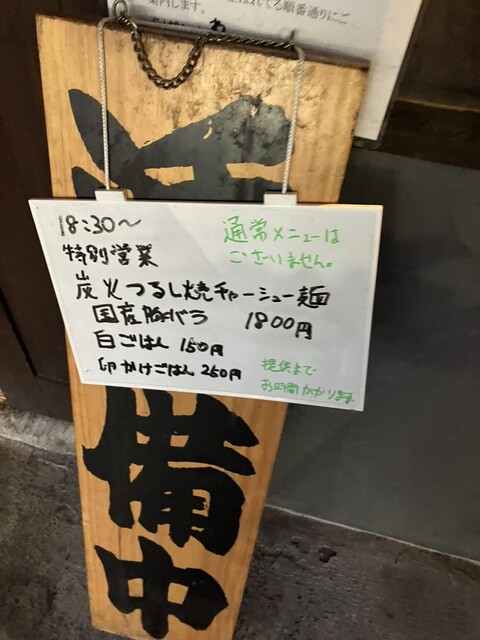 案内します。
れてる順番通りにご
18:30〜
通常メニューは
ございません。
特別営業
炭火つるし焼チャーシュー麺
国産豚バラ 1800円
白ごはん 150円
卵かけごはん 250円
提供まで
お時間かかります
備中